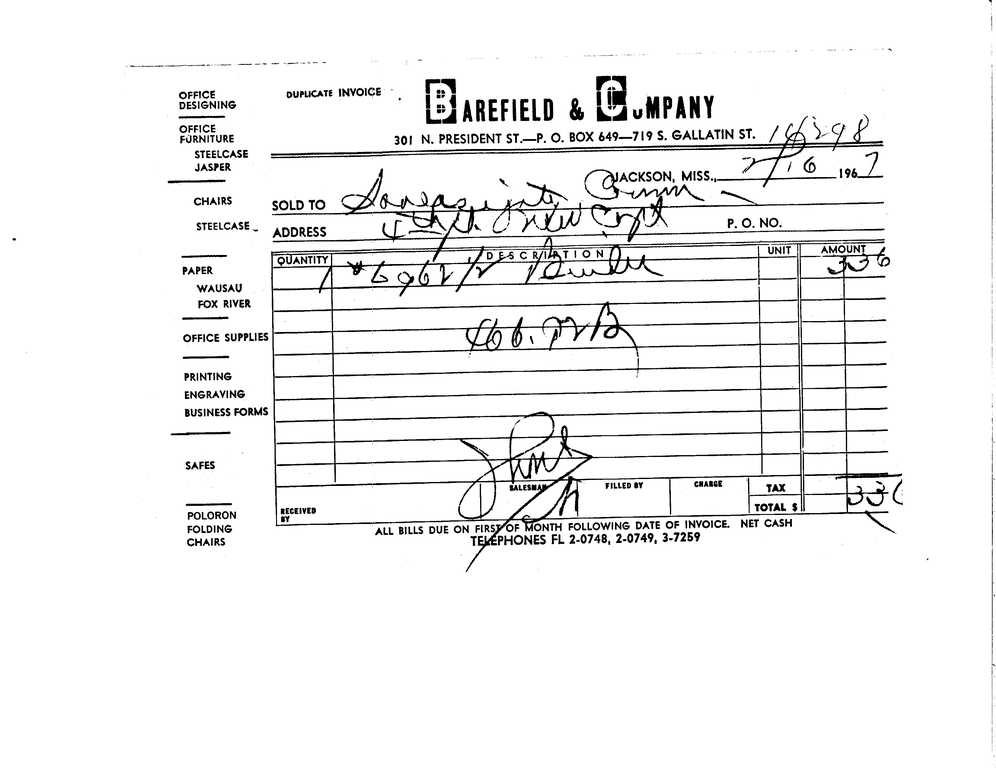 OFFICE DESIGNING
OFFICE FURNITURE
STEELCASE
JASPER
CHAIRS
STEELCASE
PAPER
WAUSAU
FOX RIVER
OFFICE SUPPLIES
PRINTING
ENGRAVING
BUSINESS FORMS
SAFES
POLORON
FOLDING
CHAIRS
DUPLICATE INVOICE
BAREFIELD & COMPANY
301 N. PRESIDENT ST.—P. O. BOX 649—719 S. GALLATIN ST.
JACKSON, MISS., 2/16 1967
SOLD TO
ADDRESS 4th fl. new P. O. NO.
QUANTITY DESCRIPTION UNIT AMOUNT
1 #6962 1/2 336
RECEIVED BY SALESMAN FILLED BY CHARGE TAX
TOTAL $ 336
ALL BILLS DUE ON FIRST OF MONTH FOLLOWING DATE OF INVOICE. NET CASH
TELEPHONES FL 2-0748, 2-0749, 3-7259